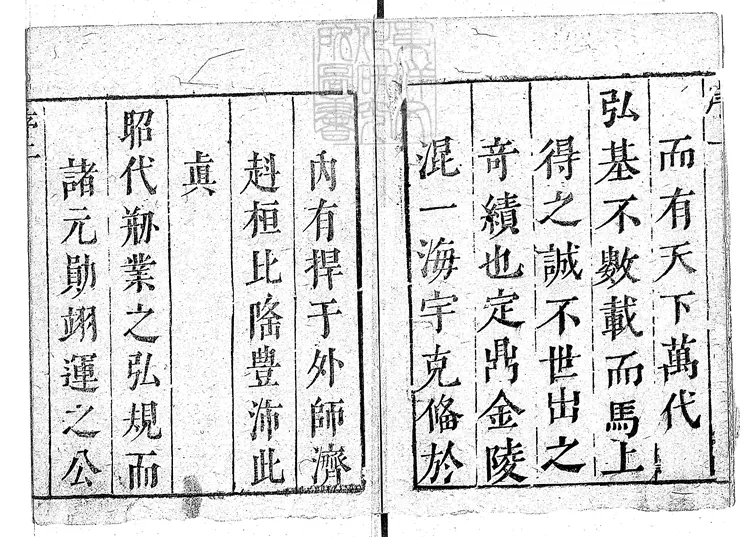 而有天下萬代
弘基不數載而馬上
得之誠不世出之
奇績也定鼎金陵
混一海宇克俻於
內有捍于外師濟
赳桓比隆豊沛此
眞
昭代刱業之弘規而
諸元勛翊運之公